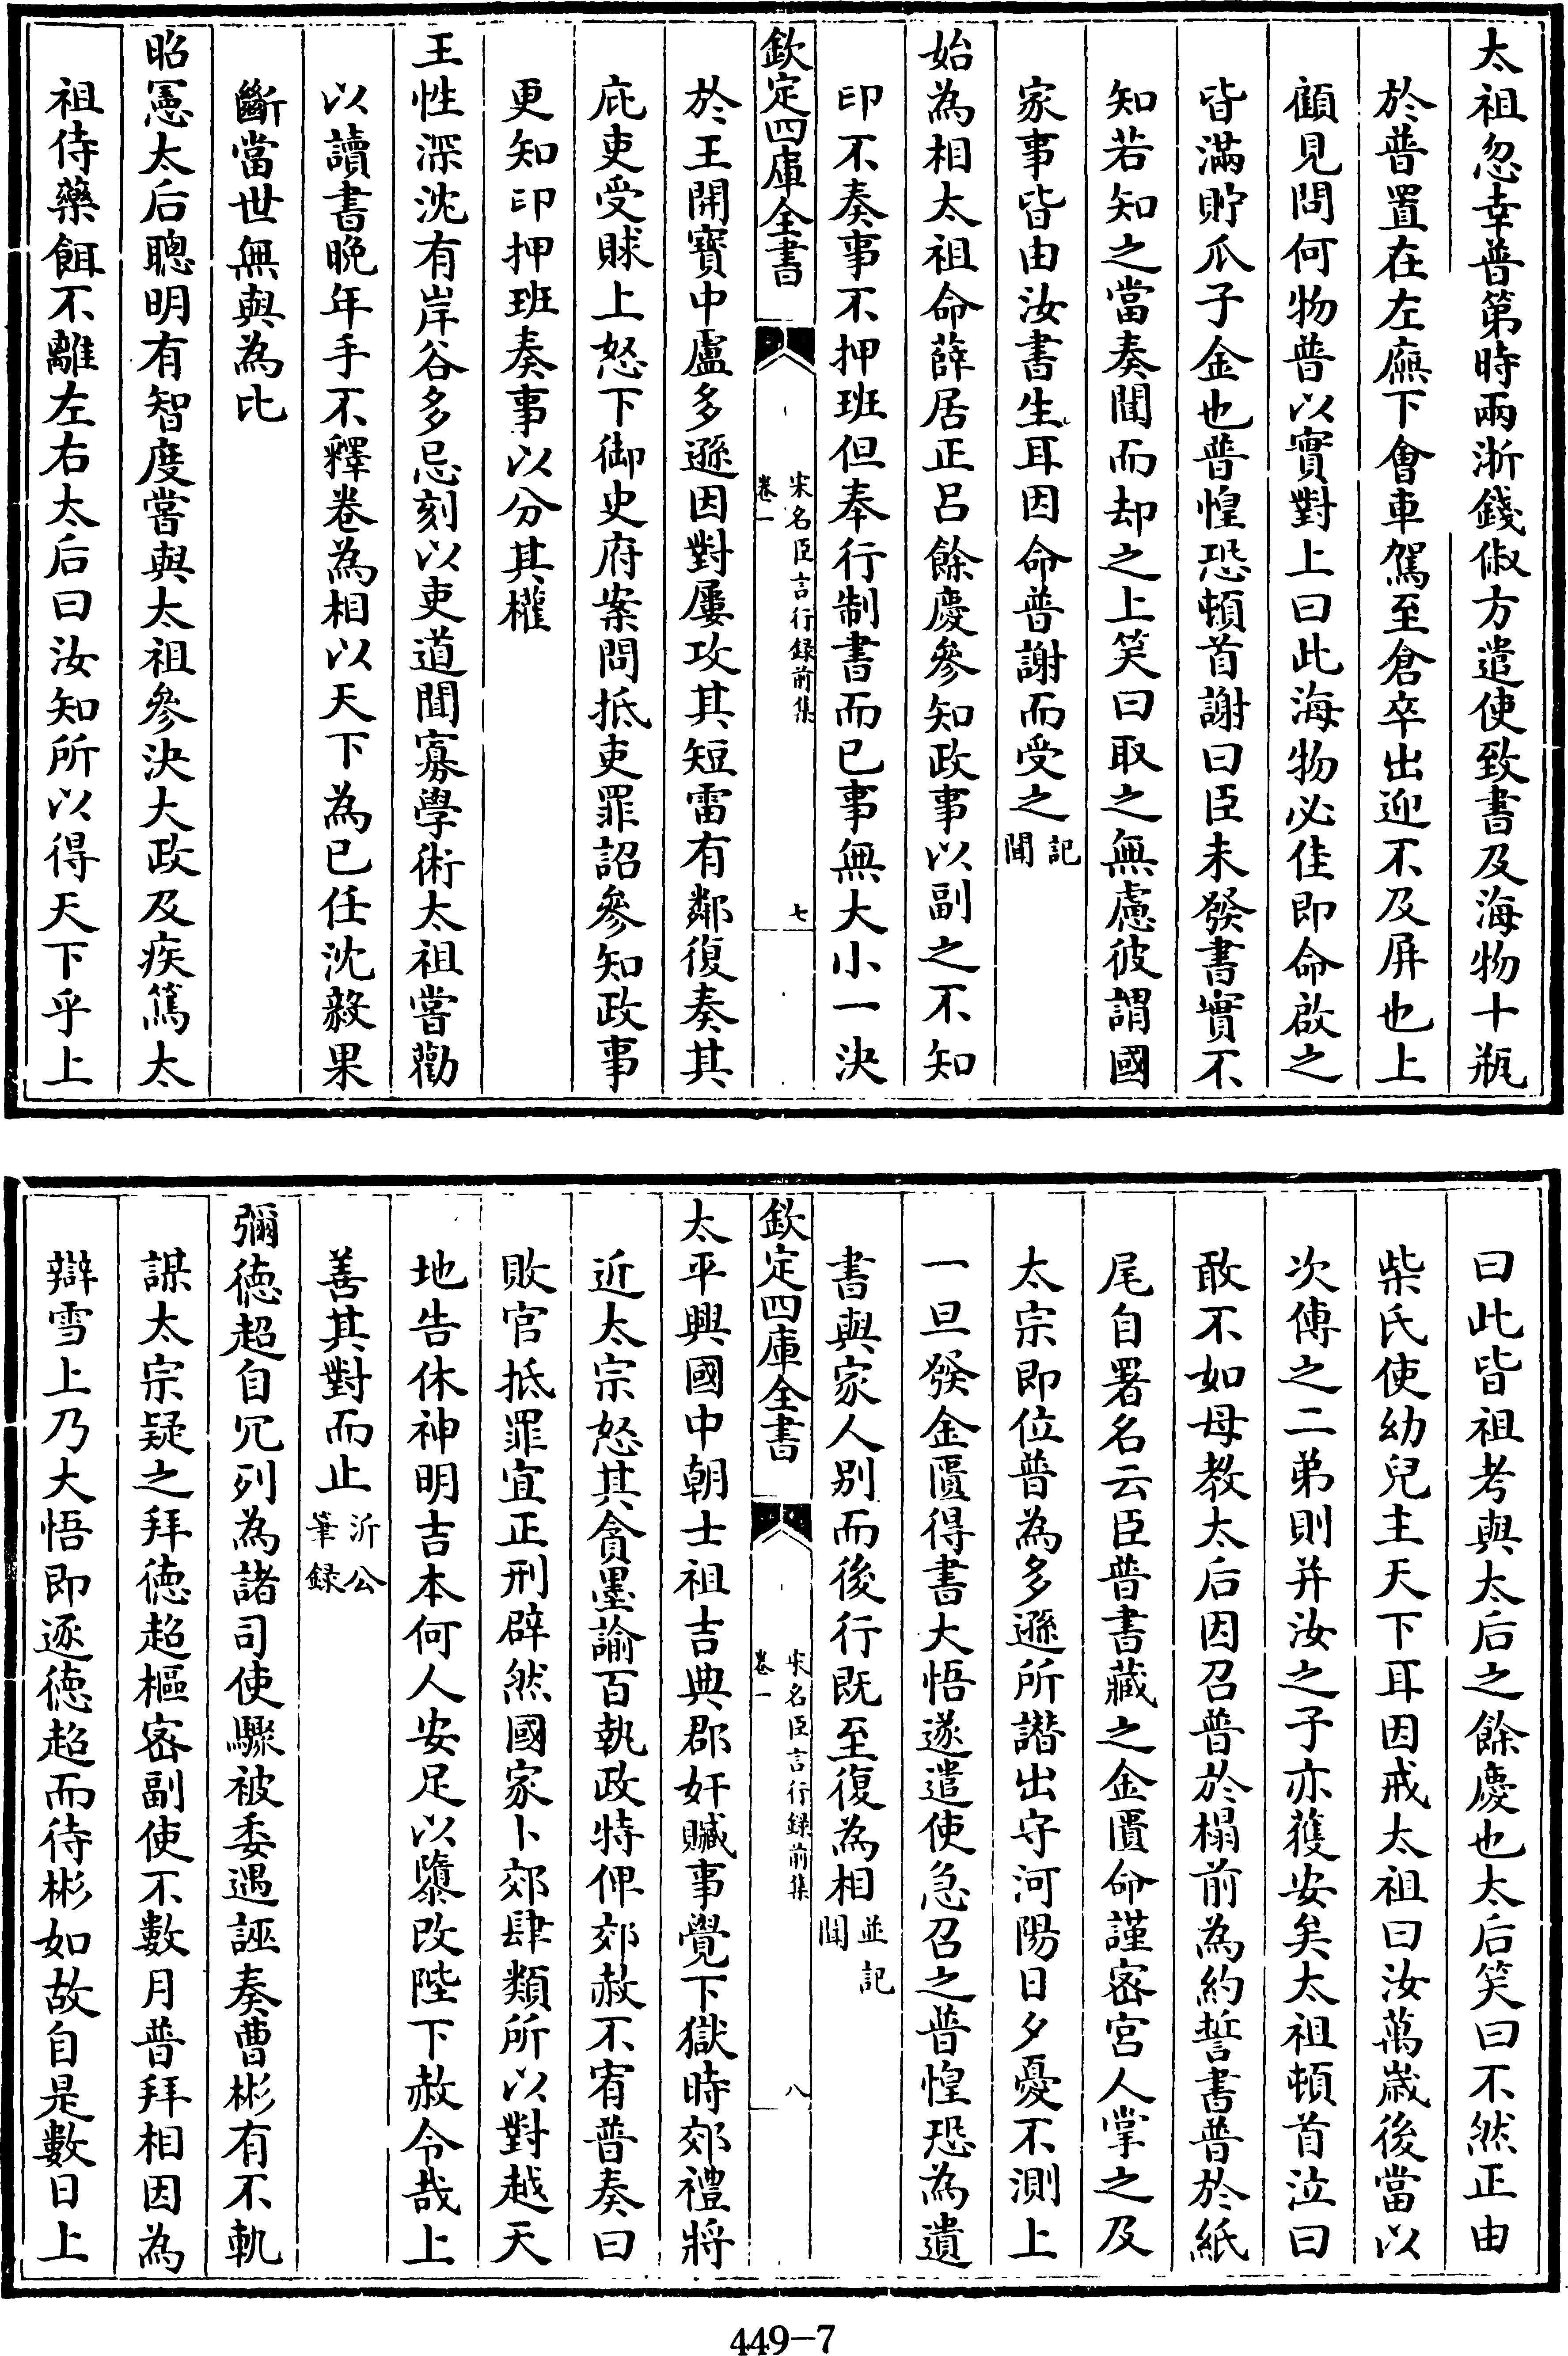 太祖忽幸普第時兩浙錢俶方遣使致書及海物十瓶
於普置在左廡下會車駕至倉卒出迎不及屏也上
顧見問何物普以實對上曰此海物必佳即命啟之
皆滿貯瓜子金也普惶恐頓首謝曰臣未發書實不
知若知之當奏聞而却之上笑曰取之無慮彼謂國
家事皆由汝書生耳因命普謝而受之記聞
始為相太祖命薛居正呂餘慶參知政事以副之不知
印不奏事不押班但奉行制書而已事無大小一決
欽定四庫全書
宋名臣言行録前集
卷一
七
於王開寳中盧多遜因對屢攻其短雷有鄰復奏其
庇吏受賕上怒下御史府案問抵吏罪詔參知政事
更知印押班奏事以分其權
王性深沈有岸谷多忌刻以吏道聞寡學術太祖嘗勸
以讀書晚年手不釋卷為相以天下為已任沈毅果
斷當世無與為比
昭憲太后聰明有智度嘗與太祖參決大政及疾篤太
祖侍藥餌不離左右太后曰汝知所以得天下乎上
曰此皆祖考與太后之餘慶也太后笑曰不然正由
柴氏使幼兒主天下耳因戒太祖曰汝萬歲後當以
次傳之二弟則并汝之子亦獲安矣太祖頓首泣曰
敢不如母教太后因召普於榻前為約誓書普於紙
尾自署名云臣普書藏之金匱命謹宻宮人掌之及
太宗即位普為多遜所譖出守河陽日夕憂不測上
一旦發金匱得書大悟遂遣使急召之普惶恐為遺
書與家人别而後行既至復為相並記聞
欽定四庫全書
宋名臣言行録前集
卷一
八
太平興國中朝士祖吉典郡奸贓事覺下獄時郊禮將
近太宗怒其貪墨諭百執政特俾郊赦不宥普奏曰
敗官抵罪宜正刑辟然國家卜郊肆類所以對越天
地告休神明吉本何人安足以隳改陛下赦令哉上
善其對而止沂公筆録
彌徳超自冗列為諸司使驟被委遇誣奏曹彬有不軌
謀太宗疑之拜徳超樞宻副使不數月普拜相因為
辯雪上乃大悟即逐徳超而待彬如故自是數日上
449-7